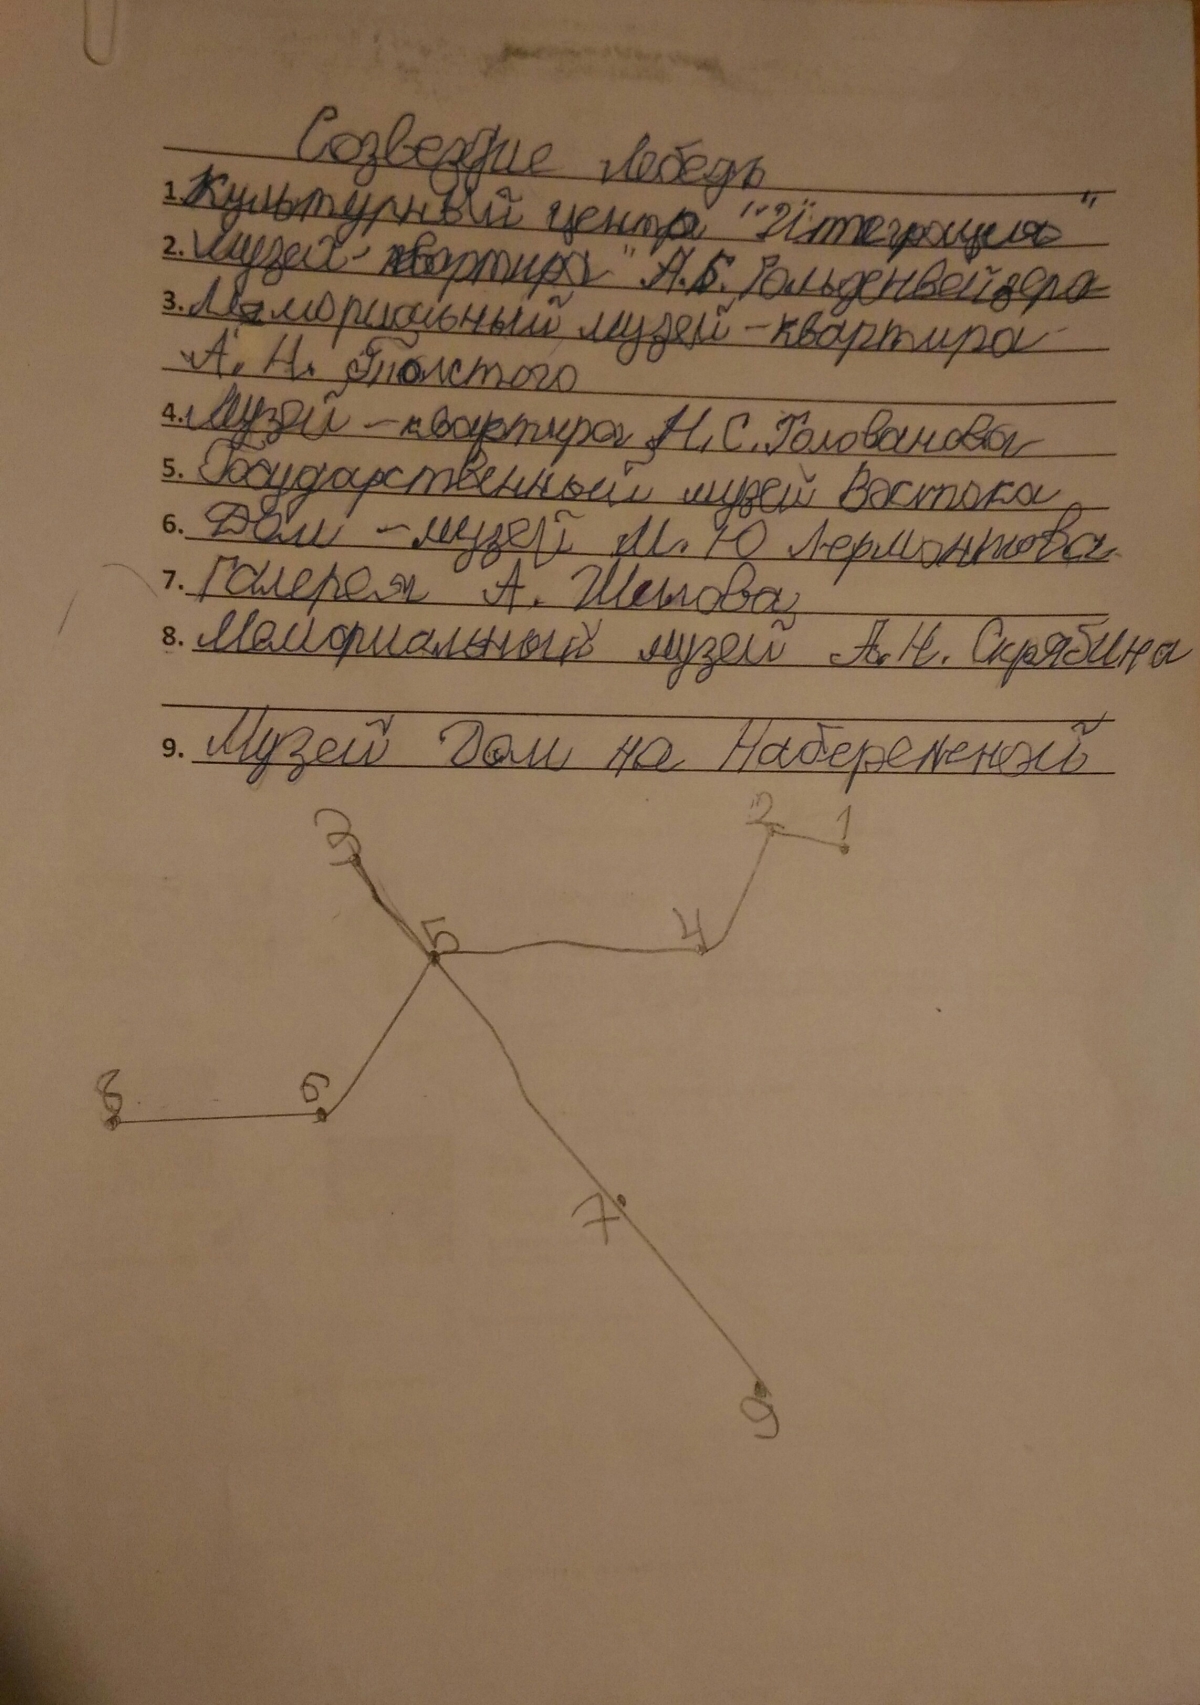 Созвездие Лебедь
1. Культурный центр "Интеграция"
2. Музей-квартира А.Б. Гольденвейзера
3. Мемориальный музей-квартира
А. Н. Толстого
4. Музей-квартира Н.С. Голованова
5. Государственный музей Востока
6. Дом-музей М. Ю Лермонтова
7. Галерея А. Шилова
8. Мемориальный музей А.Н. Скрябина
9. Музей Дом на Набережной
3 2 1
5 4
8 6
7
9